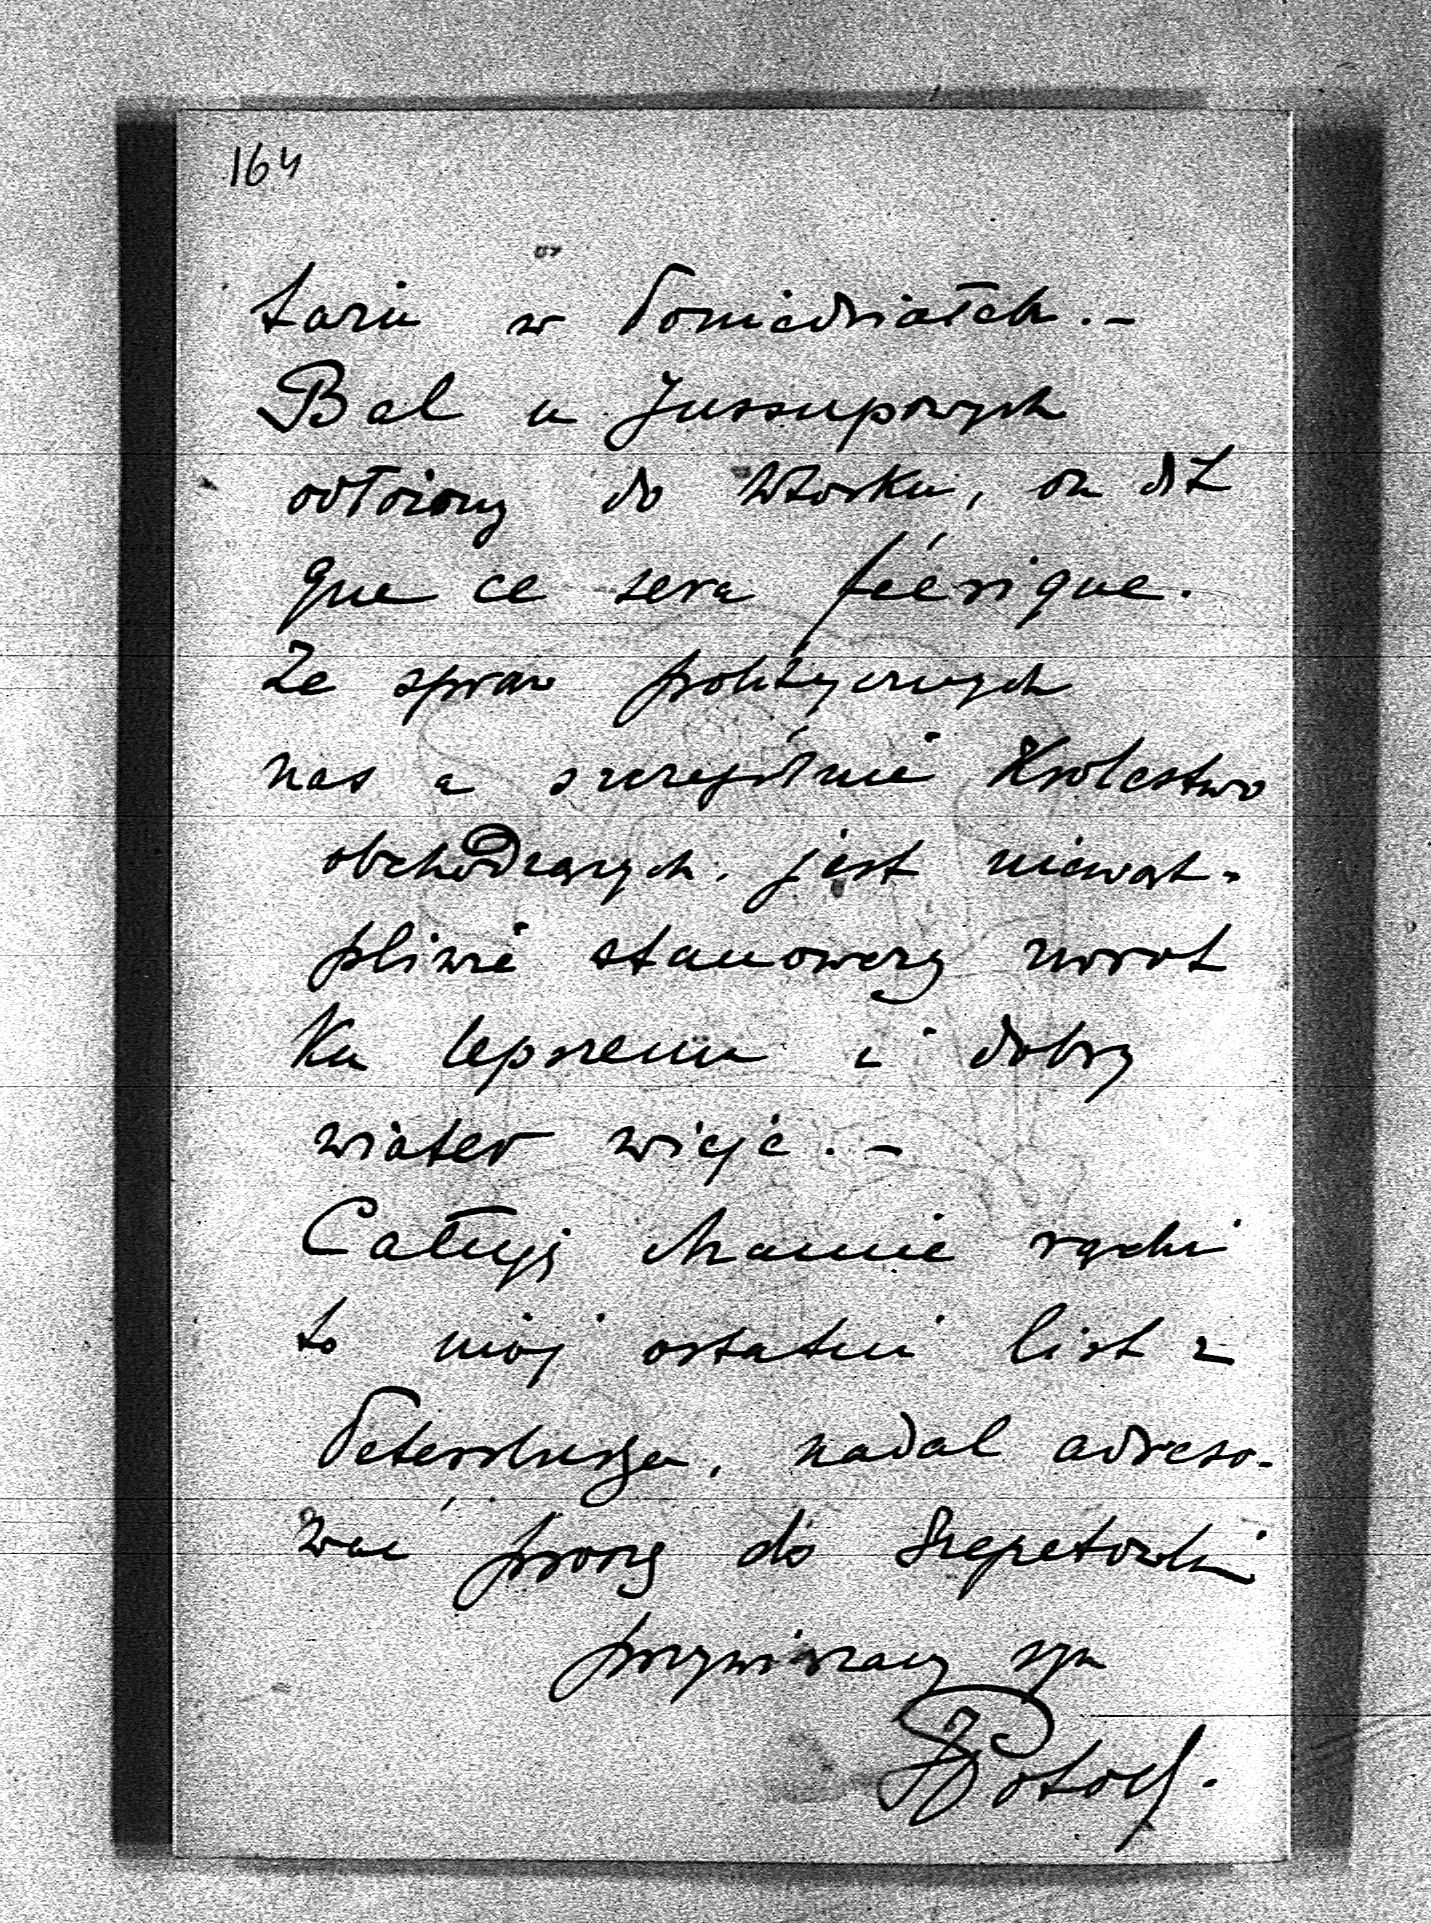 164
tariu w Poniedziałek. –
Bal u Jussupowych
odłożony do Wtorku, on dit
que ce sera féérique.
Ze spraw politycznych
nas a szczególnie Królestwo
obchodzących. jest niewąt-
pliwie stanowczy zwrot
ku lepszemu i dobry
wiater wieje. –
Całuję Mamie rączki
to mój ostatni list z
Petersburga, nadal adreso-
wać proszę do Szepetówki
przywiązany syn
JPotocki.